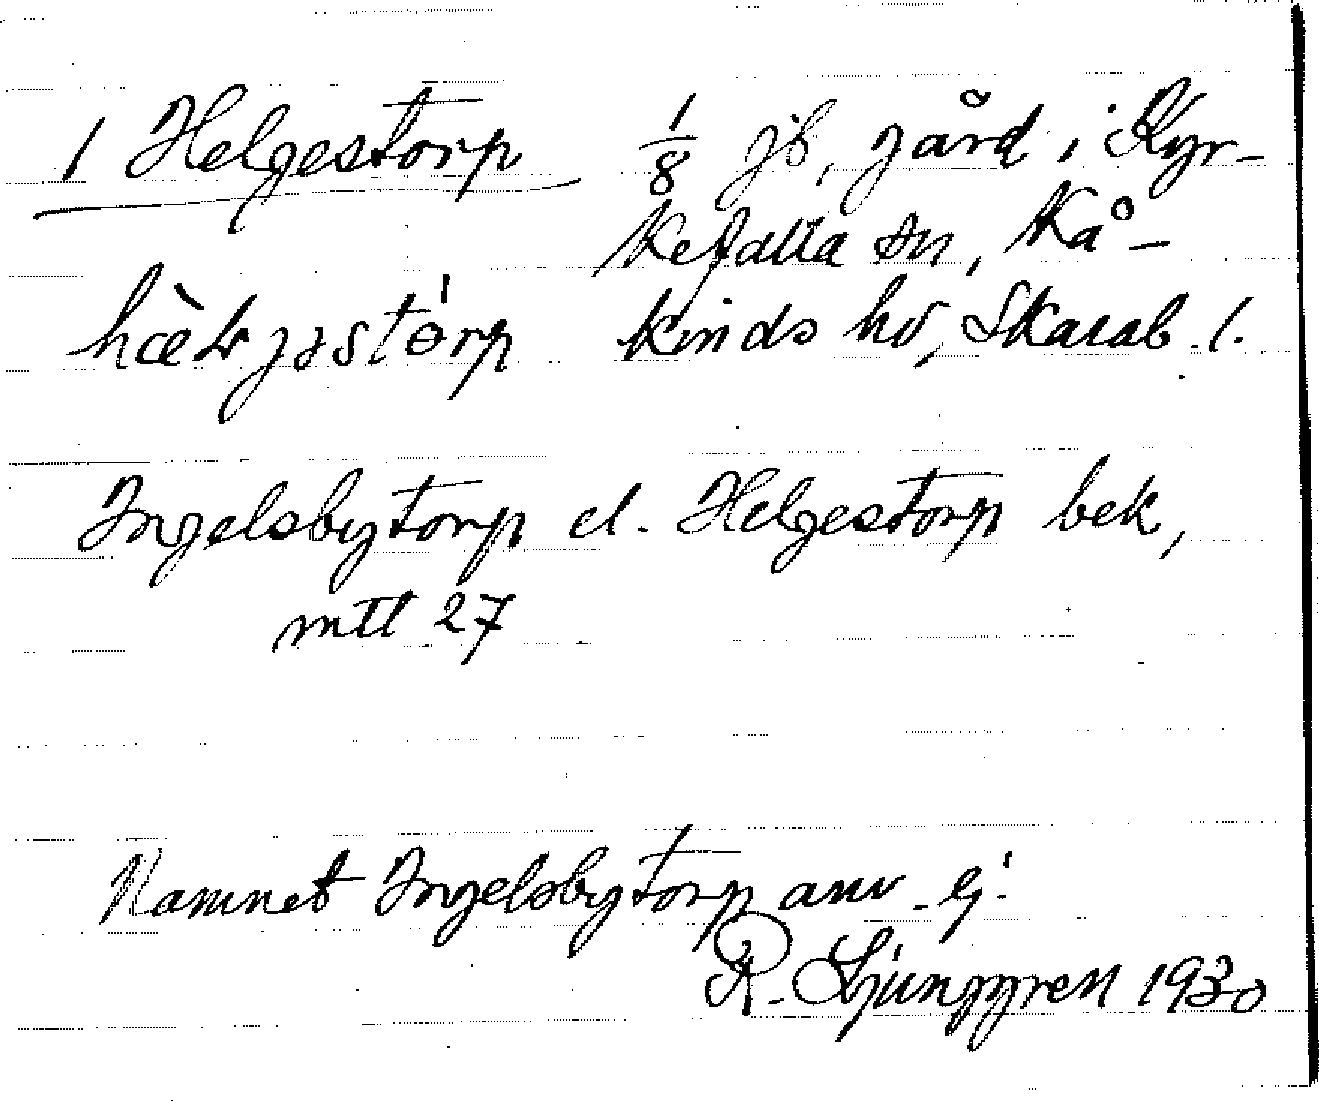 1 Helgestorp 1/8 jb, gård i Kyr-
kefalla sn, Kå-
kinds hd, Skarab. l.
Ingelsbytorp el. Helgestorp bek,
mtl 27
Namnet Ingelsbytorp anv. ej.
R. Ljunggren 1930